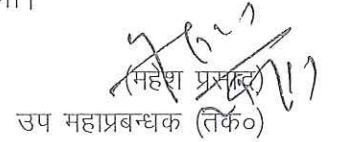 (महेश प्रसाद)
उप महाप्रबन्धक (तक०)